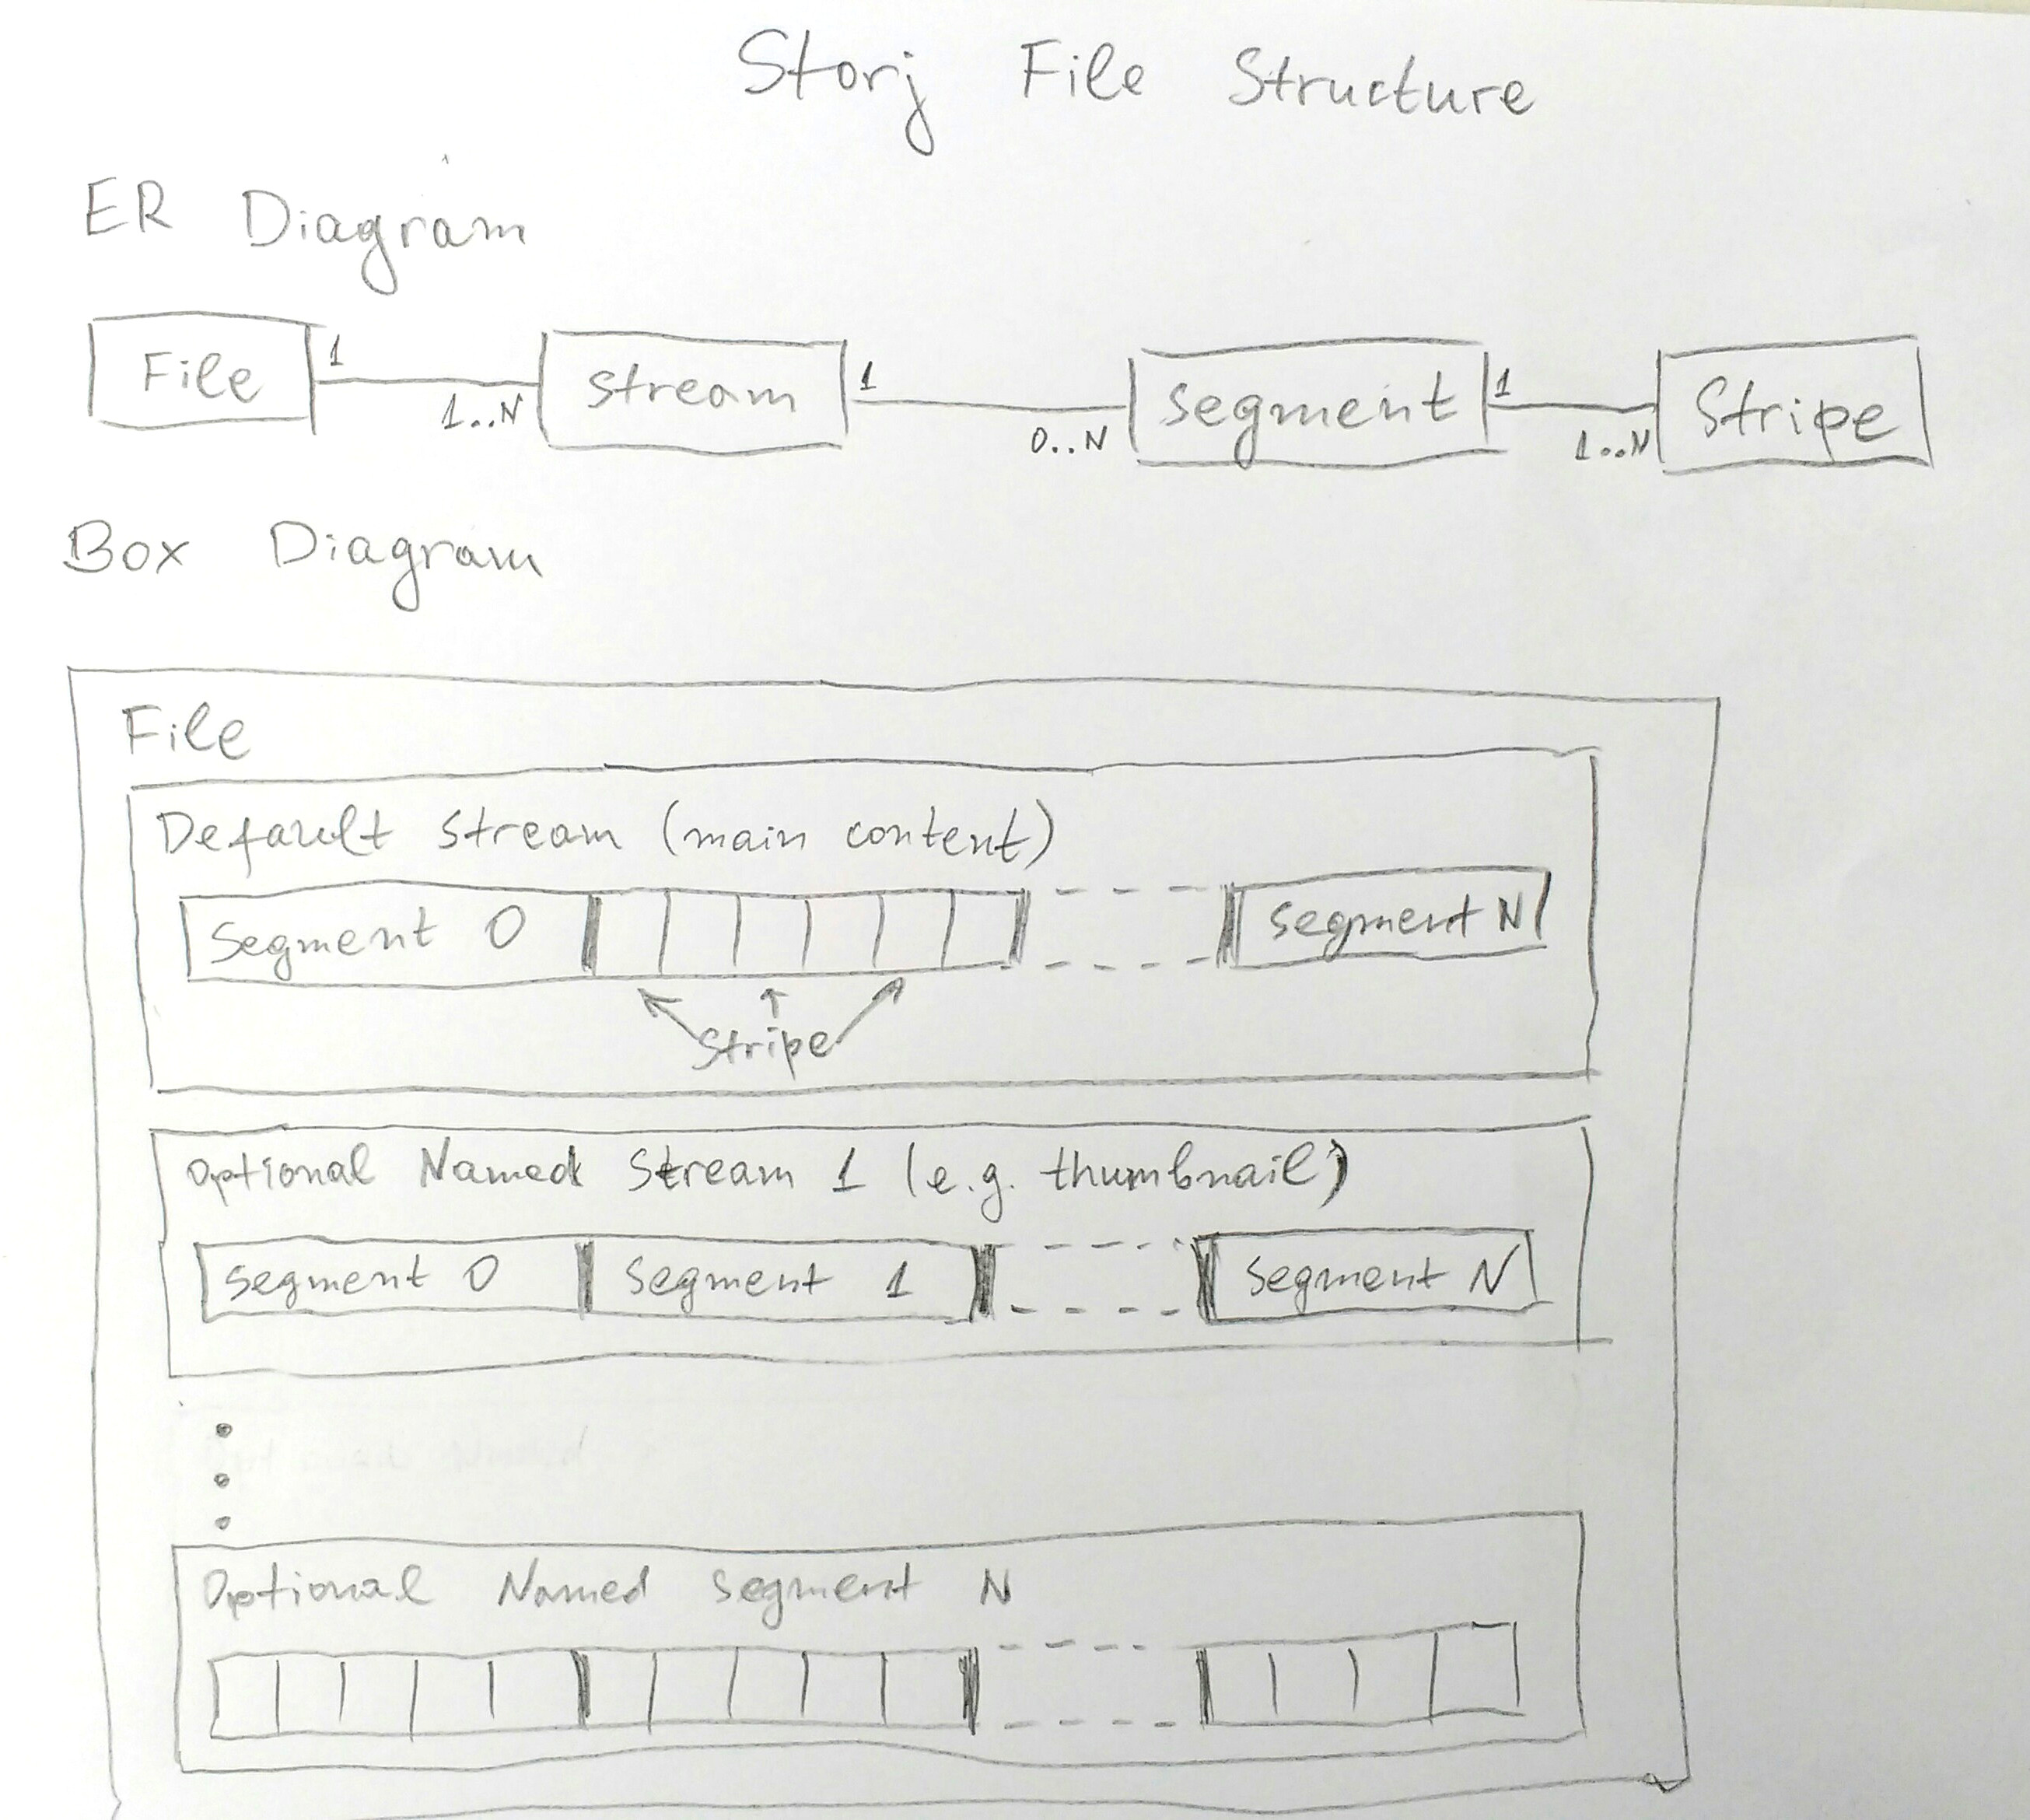 Storj File Structure
ER Diagram
File 1 1..N Stream 1 0..N Segment 1 1..N Stripe
Box Diagram
File
Default Stream (main content)
Segment 0 Segment N
Stripe
Optional Named Stream 1 (e.g. thumbnail)
Segment 0 Segment 1 Segment N
Optional Named Segment N